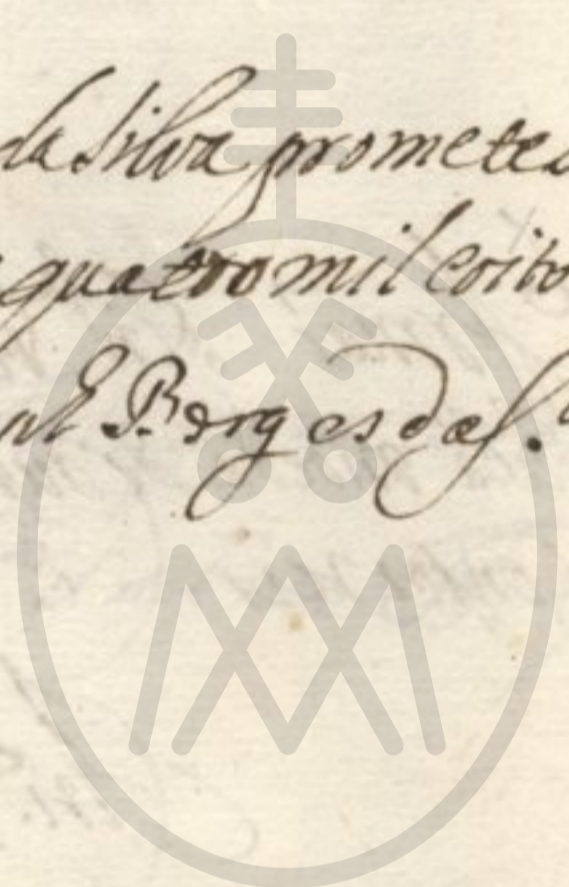 da Silva prometeo
quatro mil eoito
Borges da S.